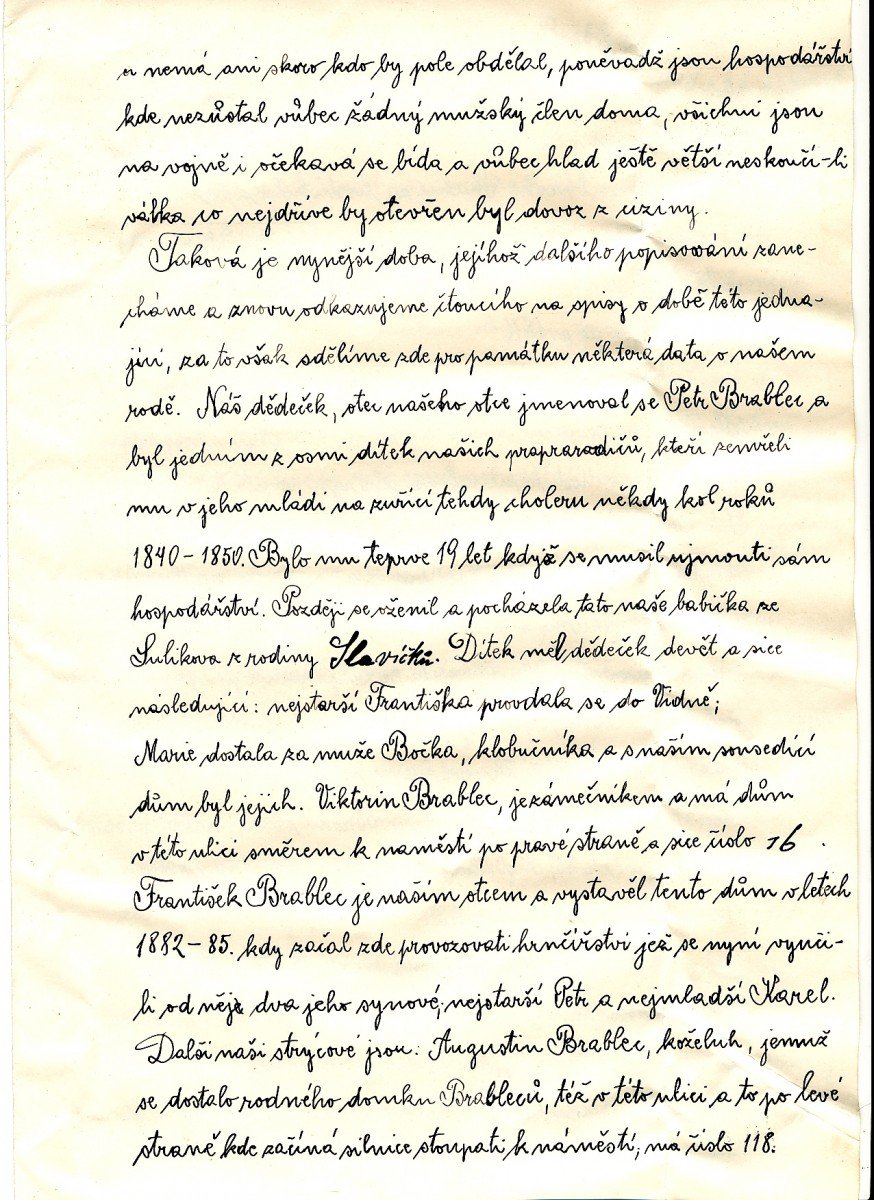 a nemá ani skoro kdo by pole obdělal, poněvadž jsou hospodářství
kde nezůstal vůbec žádný mužský člen doma, všichni jsou
na vojně i očekává se bída a vůbec hlad ještě větší neskončí-li
válka co nejdříve by otevřen byl dovoz z ciziny.
Taková je nynější doba, jejíhož dalšího popisování zane-
cháme a znovu odkazujeme čtoucího na spisy o době této jedna-
jící, za to však sdělíme zde pro památku některá data o našem
rodě. Náš dědeček, otec našeho otce jmenoval se Petr Brablec a
byl jedním z osmi dítek našich praprarodičů, kteří zemřeli
mu v jeho mládí na zuřící tehdy choleru někdy kol roků
1840-1850. Bylo mu teprve 19 let když se musil ujmouti sám
hospodářství. Později se oženil a pocházela tato naše babička ze
Sulikova z rodiny Slavíčků. Dítek měl dědeček devět a sice
následující: nejstarší Františka provdala se do Vídně;
Marie dostala za muže Bočka, klobučníka a s naším sousedící
dům byl jejich. Viktorin Brablec, je zámečníkem a má dům
v této ulici směrem k naměstí po pravé straně a sice číslo 76.
František Brablec je naším otcem a vystavěl tento dům v letech
1882-85. kdy začal zde provozovati hrnčířství jež se nyní vyuči-
li od něje dva jeho synové; nejstarší Petr a nejmladší Karel.
Další naši strýcové jsou: Augustin Brablec, koželuh, jemuž
se dostalo rodného domku Brableců, též v této ulici a to po levé
straně kde začíná silnice stoupati k náměstí, má číslo 118.